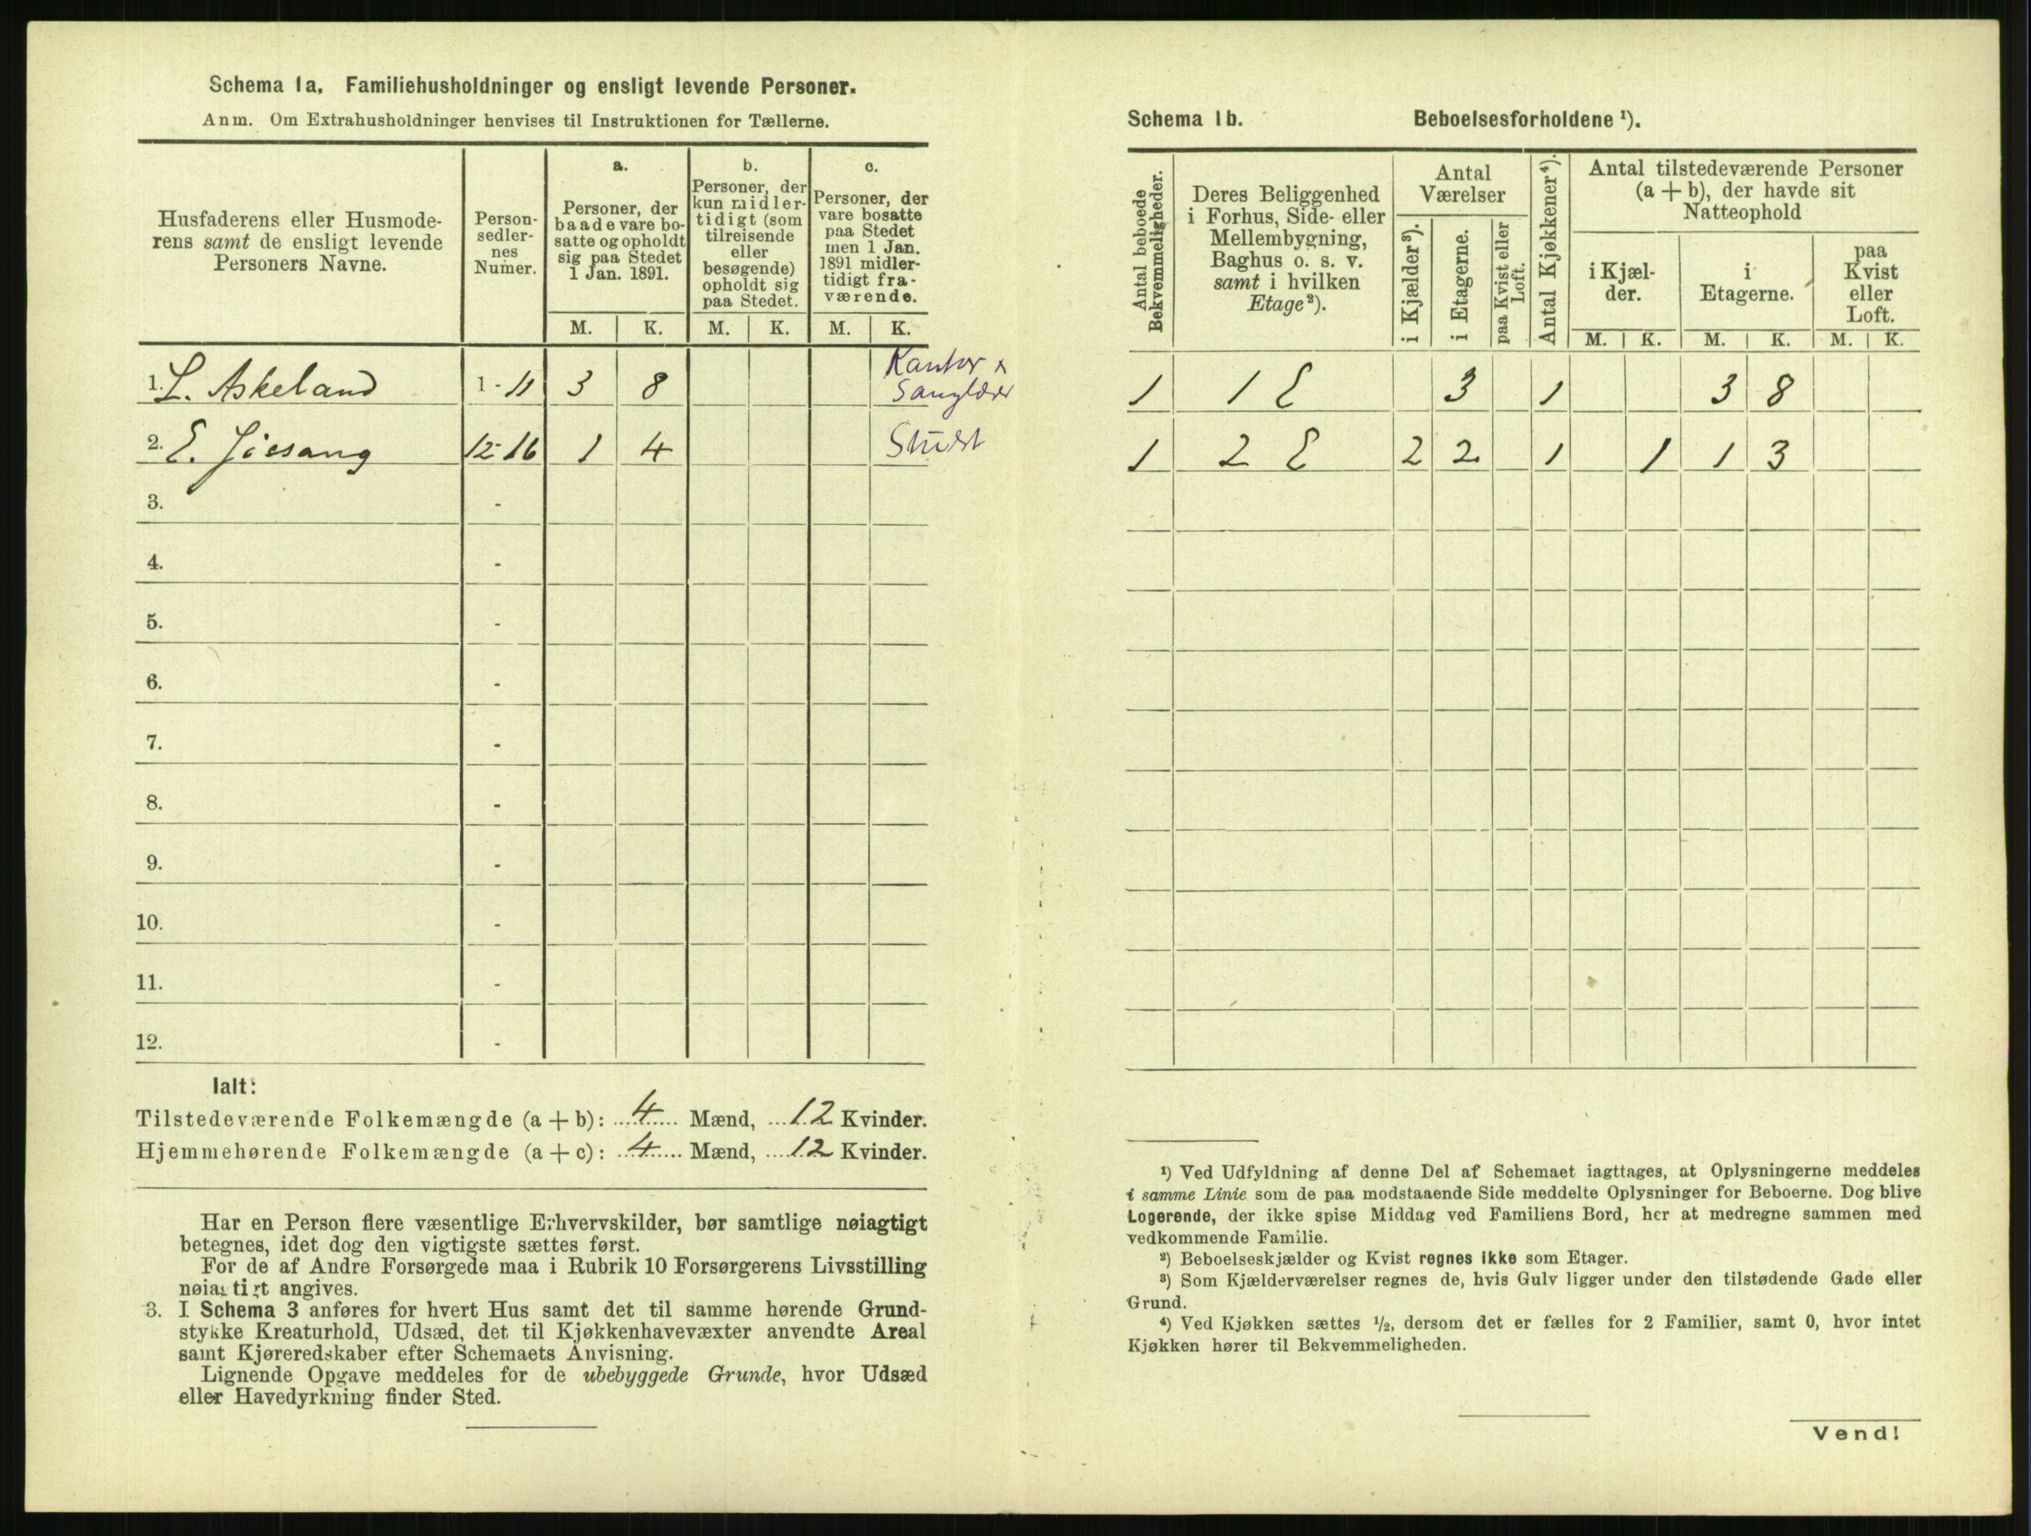 Schema 1a. Familiehusholdninger og ensligt levende Personer.
Anm. Om Extrahusholdninger henvises til Instruktionen for Tællerne.
Husfaderens eller Husmode-
rens samt de ensligt levende
Personers Navne.
Person-
sedler-
nes
Numer.
a.
Personer, der
baade vare bo-
satte og opholdt
sig paa Stedet
1 Jan. 1891.
b.
Personer, der
kun midler-
tidigt (som
tilreisende
eller
besøgende)
opholdt sig
paa Stedet.
c.
Personer, der
vare bosatte
paa Stedet
men 1 Jan.
1891 midler-
tidigt fra-
værende.
M. K. M. K. M. K.
1. L. Askeland 1 - 11 3 8 Kantor
Sanglærer
2. E. 12-16 1 4
3. -
4. -
5. -
6. -
7. -
8. -
9. -
10. -
11. -
12. -
Ialt:
Tilstedeværende Folkemængde (a + b): 4 Mænd, 12 Kvinder.
Hjemmehørende Folkemængde (a + c): 4 Mænd, 12 Kvinder.
Har en Person flere væsentlige Erhvervskilder, bør samtlige nøiagtigt
betegnes, idet dog den vigtigste sættes først.
For de af Andre Forsørgede maa i Rubrik 10 Forsørgerens Livsstilling
nøiagtigt angives.
3. I Schema 3 anføres for hvert Hus samt det til samme hørende Grund-
stykke Kreaturhold, Udsæd, det til Kjøkkenhavevæxter anvendte Areal
samt Kjøreredskaber efter Schemaets Anvisning.
Lignende Opgave meddeles for de ubebyggede Grunde, hvor Udsæd
eller Havedyrkning finder Sted.
Schema 1b. Beboelsesforholdene ¹).
Antal beboede
Bekvemmeligheder.
Deres Beliggenhed
i Forhus, Side- eller
Mellembygning,
Baghus o. s. v.
samt i hvilken
Etage²).
Antal
Værelser
i Kjælder³).
i Etagerne.
paa Kvist eller
Loft.
Antal Kjøkkener⁴).
Antal tilstedeværende Personer
(a + b), der havde sit
Natteophold
i Kjæl-
der.
i
Etagerne.
paa
Kvist
eller
Loft.
M. K. M. K. M. K.
1 1 E 3 1 3 8
1 2 E 2 2 1 1 1 3
¹) Ved Udfyldning af denne Del af Schemaet iagttages, at Oplysningerne meddeles
i samme Linie som de paa modstaaende Side meddelte Oplysninger for Beboerne. Dog blive
Logerende, der ikke spise Middag ved Familiens Bord, her at medregne sammen med
vedkommende Familie.
²) Beboelseskjælder og Kvist regnes ikke som Etager.
³) Som Kjælderværelser regnes de, hvis Gulv ligger under den tilstødende Gade eller
Grund.
⁴) Ved Kjøkken sættes ½, dersom det er fælles for 2 Familier, samt 0, hvor intet
Kjøkken hører til Bekvemmeligheden.
Vend!